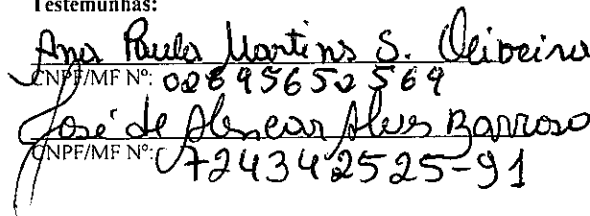 Testemunhas:
Ana Paula Martins S. Oliveira
CNPF/MF Nº: 02895652569
José de Alencar Alves Barroso
CNPF/MF Nº: 724342525-91